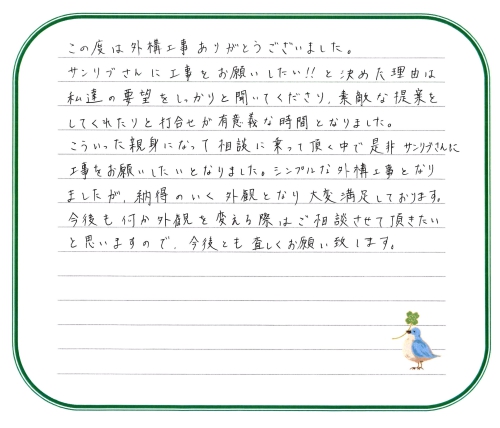 この度は外構工事ありがとうございました。
サンリブさんに工事をお願いしたい!!と決めた理由は
私達の要望をしっかりと聞いてくださり、素敵な提案を
してくれたりと打合せが有意義な時間となりました。
こういった親身になって相談に乗って頂く中で是非サンリブさんに
工事をお願いしたいとなりました。シンプルな外構工事となり
ましたが、納得のいく外観となり大変満足しております。
今後も何か外観を変える際はご相談させて頂きたい
と思いますので、今後とも宜しくお願い致します。